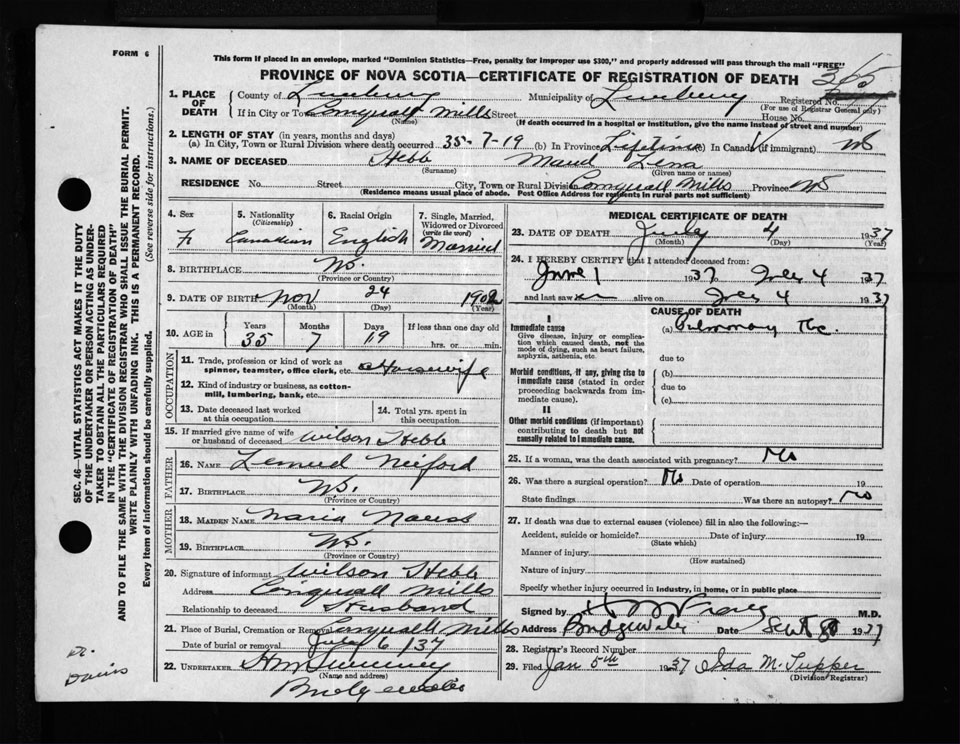 FORM 6
This form if placed in an envelope, marked "Dominion Statistics—Free, penalty for improper use $300," and properly addressed will pass through the mail "FREE"
PROVINCE OF NOVA SCOTIA—CERTIFICATE OF REGISTRATION OF DEATH
365
Registered No.
(For use of Registrar General only)
1. PLACE OF DEATH
County of Lunenburg Municipality of Lunenburg
If in City or Town Conquall Mills Street House No.
(Name)
(If death occurred in a hospital or institution, give the name instead of street and number)
2. LENGTH OF STAY (in years, months and days)
(a) In City, Town or Rural Division where death occurred 35-7-19 (b) In Province Lifetime (c) In Canada (if immigrant)
3. NAME OF DECEASED Hebb Maud Lena
(Surname) (Given name or names)
RESIDENCE No. Street City, Town or Rural Division Conquall Mills Province NS
(Residence means usual place of abode. Post Office Address for residents in rural parts not sufficient)
4. Sex
F
5. Nationality (Citizenship)
Canadian
6. Racial Origin
English
7. Single, Married, Widowed or Divorced (write the word)
Married
8. BIRTHPLACE NS.
(Province or Country)
9. DATE OF BIRTH Nov 24 1902
(Month) (Day) (Year)
10. AGE in Years Months Days If less than one day old
35 7 19 hrs. or min.
OCCUPATION
11. Trade, profession or kind of work as spinner, teamster, office clerk, etc. Housewife
12. Kind of industry or business, as cotton-mill, lumbering, bank, etc.
13. Date deceased last worked at this occupation
14. Total yrs. spent in this occupation
15. If married give name of wife or husband of deceased Wilson Hebb
FATHER
16. NAME Lemuel
17. BIRTHPLACE NS.
(Province or Country)
MOTHER
18. MAIDEN NAME Maria Nauss
19. BIRTHPLACE NS.
(Province or Country)
20. Signature of informant Wilson Hebb
Address Conquall Mills
Relationship to deceased Husband
21. Place of Burial, Cremation or Removal Conquall Mills
Date of burial or removal July 6/37
22. UNDERTAKER
(Name and address)
Bridgewater
MEDICAL CERTIFICATE OF DEATH
23. DATE OF DEATH July 4 1937
(Month) (Day) (Year)
24. I HEREBY CERTIFY that I attended deceased from:
June 1 1937 July 4 1937
and last saw alive on July 4 1937
CAUSE OF DEATH
I
Immediate cause
Give disease, injury or complication which caused death, not the mode of dying, such as heart failure, asphyxia, asthenia, etc.
(a) Pulmonary Tbc.
due to
Morbid conditions, if any, giving rise to immediate cause (stated in order proceeding backwards from immediate cause).
(b)
due to
(c)
II
Other morbid conditions (if important) contributing to death but not causally related to immediate cause.
25. If a woman, was the death associated with pregnancy? No
26. Was there a surgical operation? No Date of operation 19
State findings Was there an autopsy? No
27. If death was due to external causes (violence) fill in also the following:—
Accident, suicide or homicide? Date of injury 19
(State which)
Manner of injury
(How sustained)
Nature of injury
Specify whether injury occurred in industry, in home, or in public place
Signed by M.D.
Address Bridgewater Date Sept 1937
28. Registrar's Record Number
29. Filed Jan 5th 1937 Ida M. Tupper
(Division Registrar)
Dr. Davis
SEC. 46—VITAL STATISTICS ACT MAKES IT THE DUTY
OF THE UNDERTAKER OR PERSON ACTING AS UNDER-
TAKER TO OBTAIN ALL THE PARTICULARS REQUIRED
IN THE "CERTIFICATE OF REGISTRATION OF DEATH"
AND TO FILE THE SAME WITH THE DIVISION REGISTRAR WHO SHALL ISSUE THE BURIAL PERMIT.
WRITE PLAINLY WITH UNFADING INK. THIS IS A PERMANENT RECORD.
Every item of information should be carefully supplied. (See reverse side for instructions.)